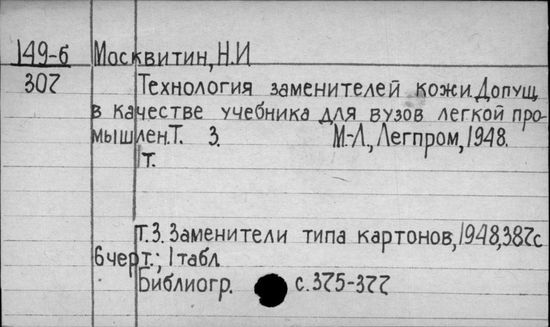 149-б Москвитин, Н.И
307 Технология заменителей кожи. Допущ.
в качестве учебника для вузов легкой про-
мышлен. Т. 3. М.-Л., Легпром, 1948.
1т.
Т.3. Заменители типа картонов, 1948, 387с
6 черт.; 1 табл
Библиогр. с. 375-377